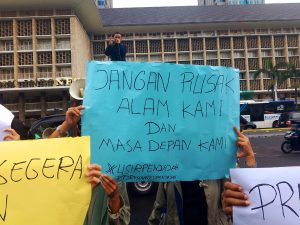 JANGAN RUSAK
ALAM KAMI
DAN
MASA DEPAN KAMI
SEGERA
PR